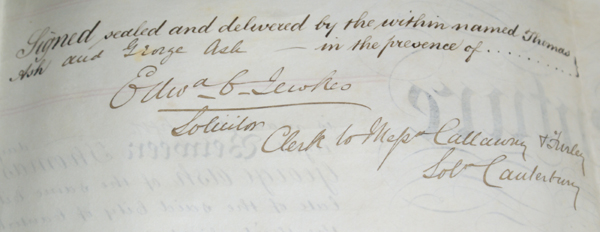 Signed, sealed and delivered by the within named Thomas
Ash and George Ash — in the presence of ..........
Solicitor
Clerk to Messrs Callaway & Furley
Solrs Canterbury